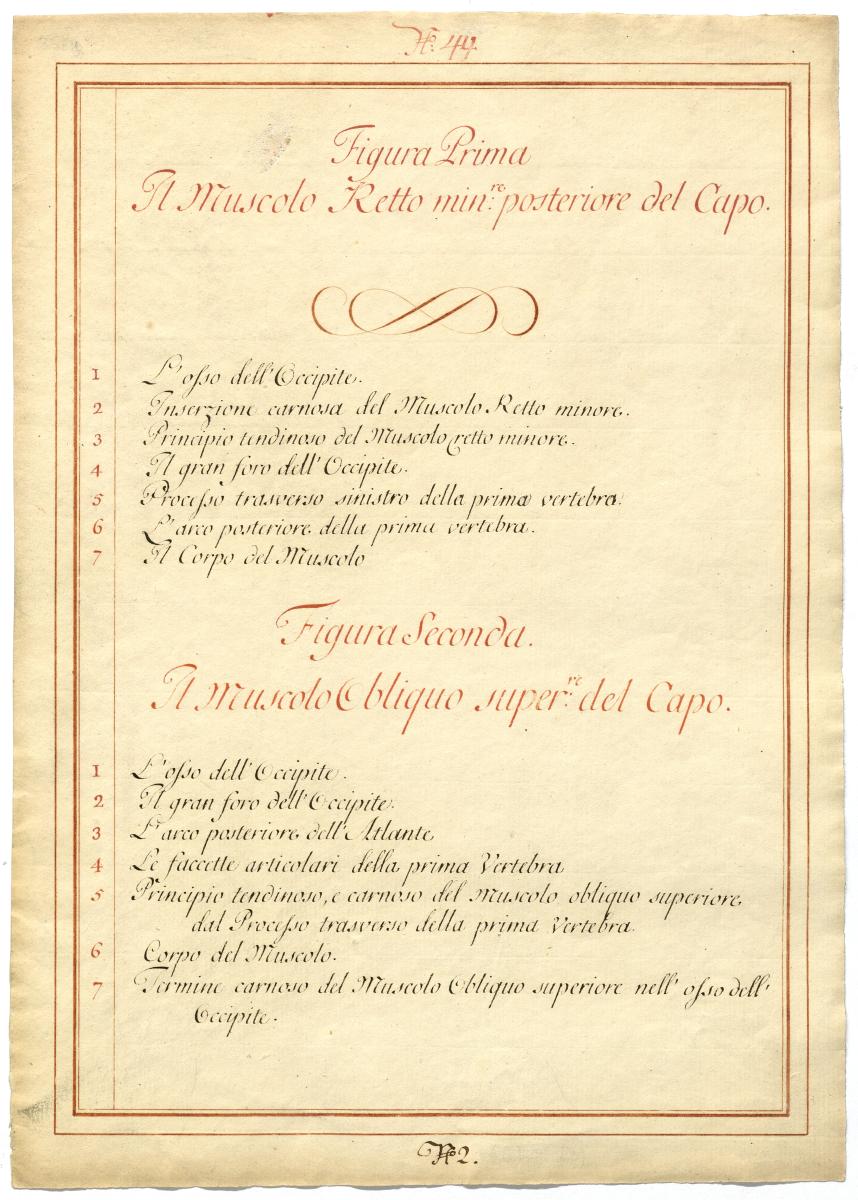 N.º 44.
Figura Prima
Il Muscolo Retto min.re posteriore del Capo.
1 L'osso dell'Occipite.
2 Inserzione carnosa del Muscolo Retto minore.
3 Principio tendinoso del Muscolo retto minore.
4 Il gran foro dell'Occipite.
5 Processo trasverso sinistro della prima vertebra.
6 L'arco posteriore della prima vertebra.
7 Il Corpo del Muscolo
Figura Seconda.
Il Muscolo Obliquo super.re del Capo.
1 L'osso dell'Occipite.
2 Il gran foro dell'Occipite.
3 L'arco posteriore dell'Atlante
4 Le faccette articolari della prima Vertebra
5 Principio tendinoso, e carnoso del Muscolo obliquo superiore
dal Processo trasverso della prima Vertebra.
6 Corpo del Muscolo.
7 Termine carnoso del Muscolo Obliquo superiore nell'osso dell'
Occipite.
Nº 2.